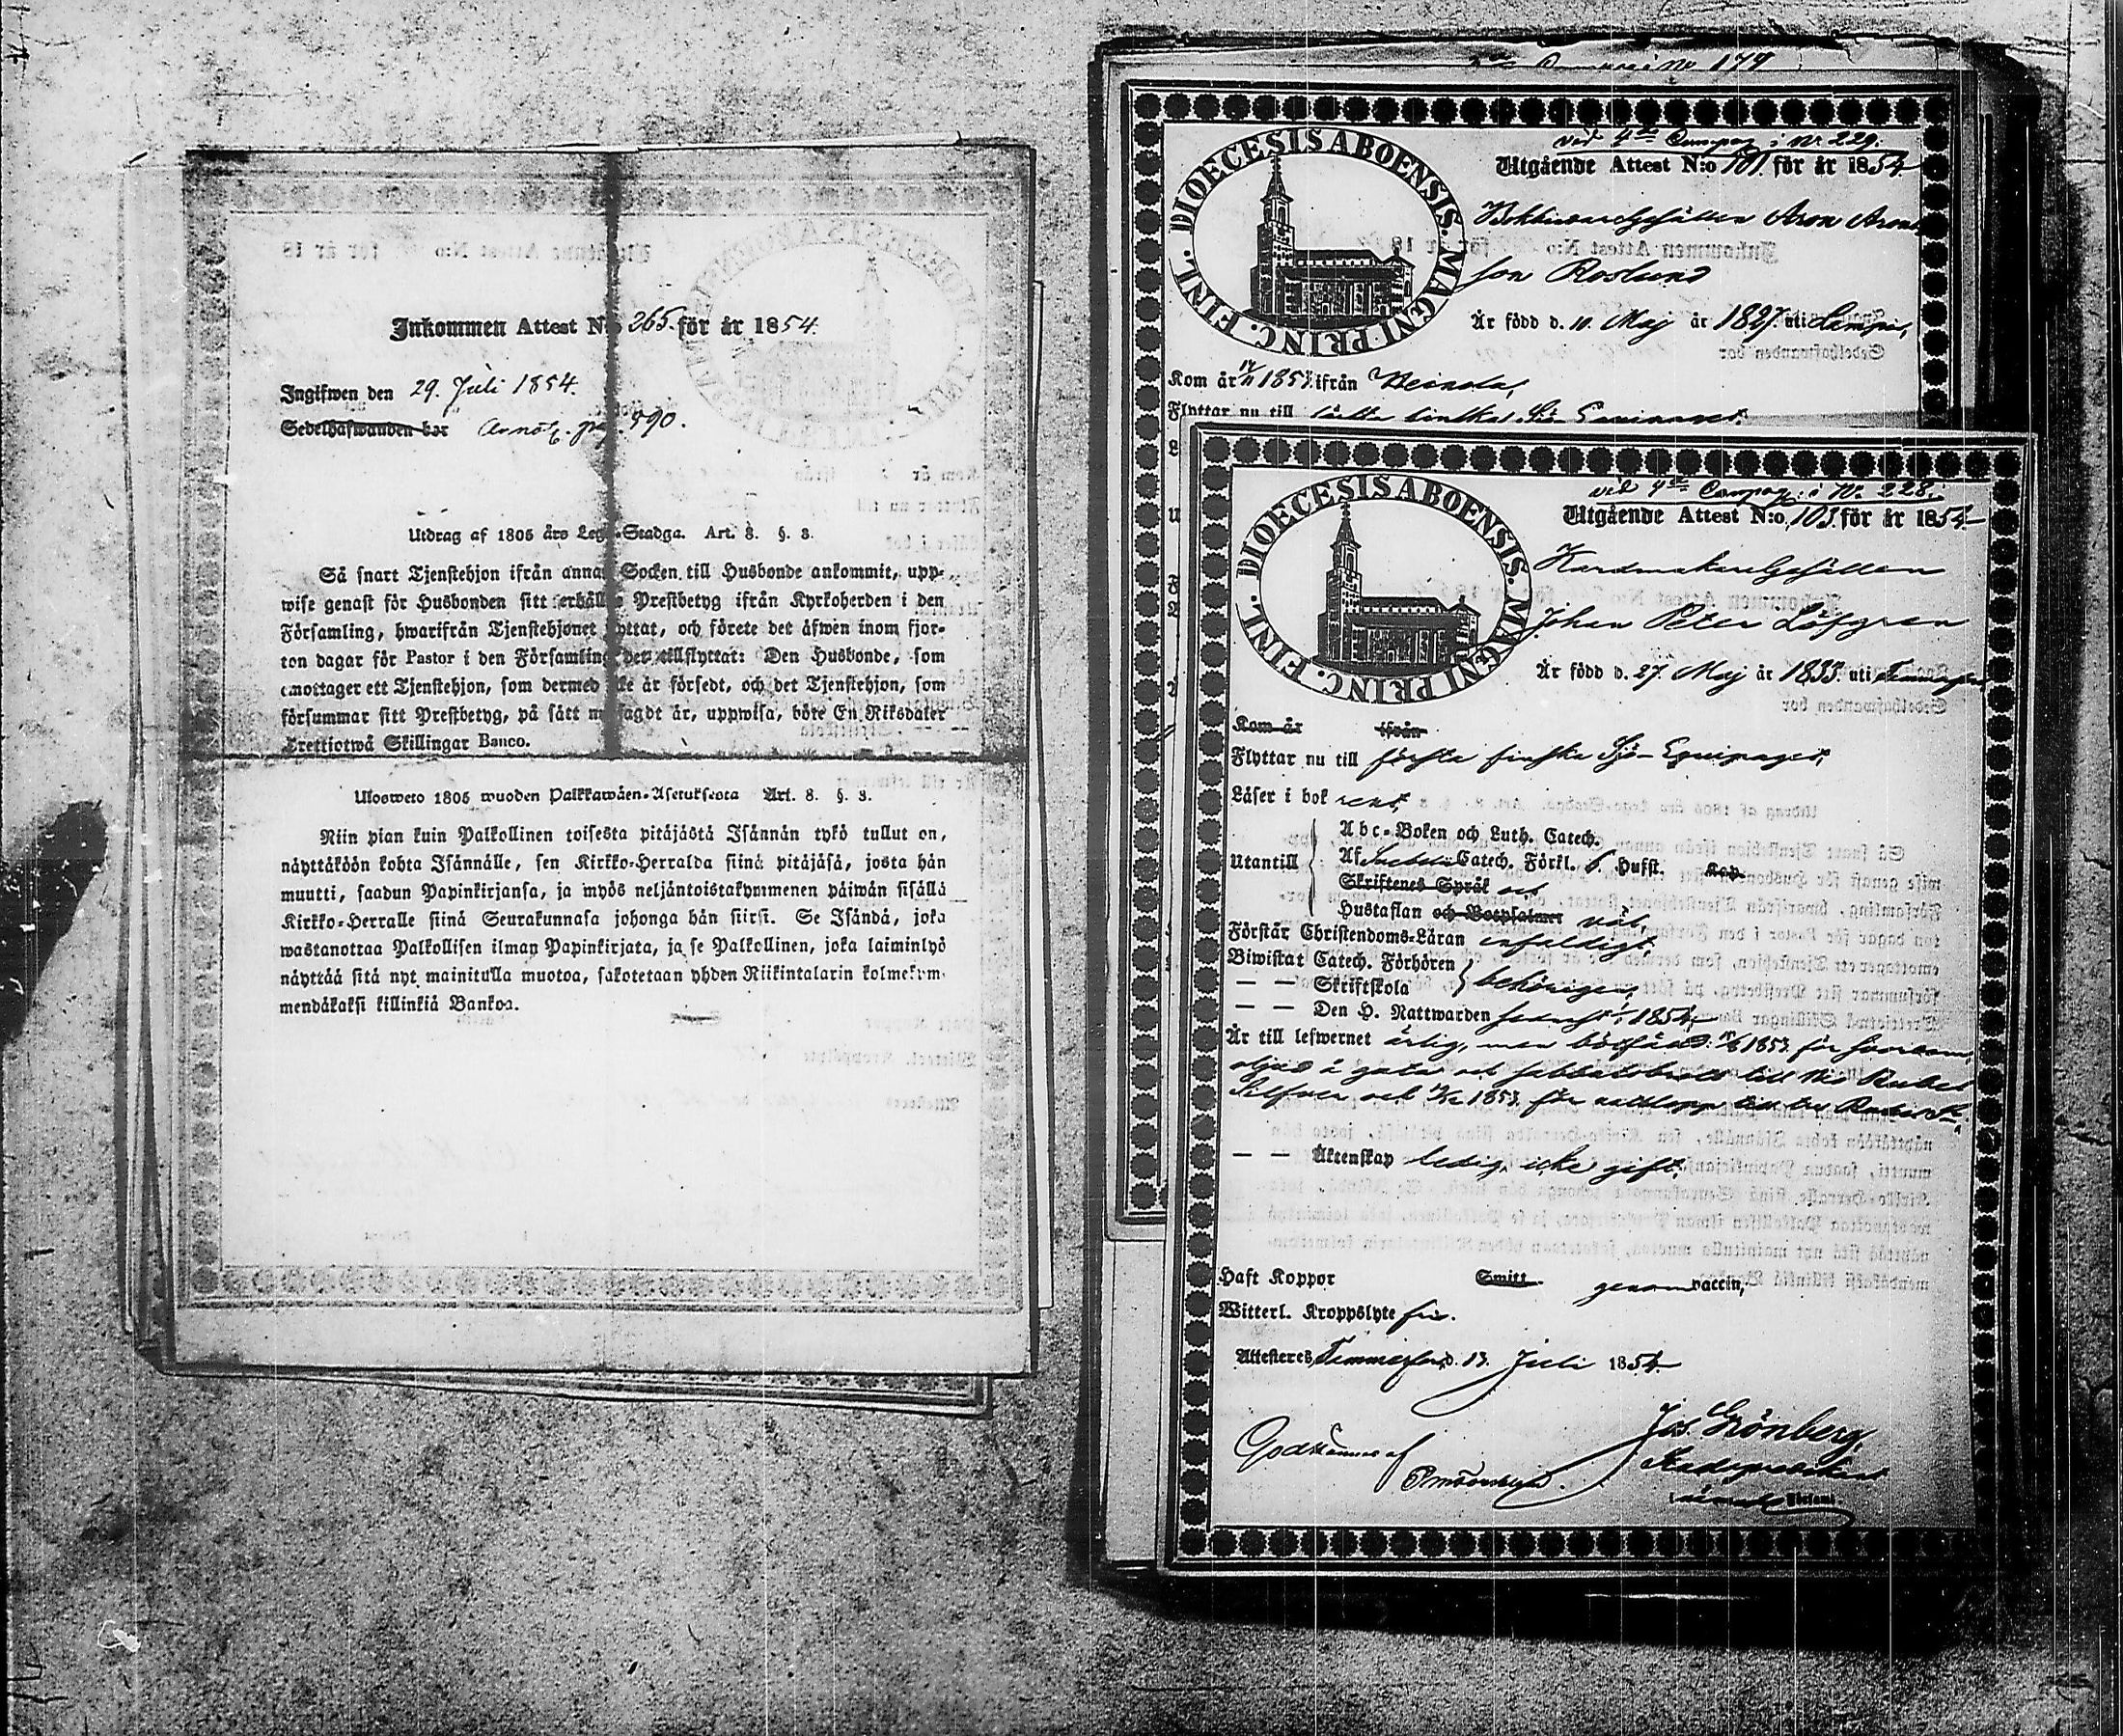 Inkommen Attest No 265. för år 1854.
Ingifwen den 29. Juli 1854.
Sedelhafwanden bor Annot. pag. 590.
Utdrag af 1805 års Lego-Stadga. Art. 8. §. 3.
Så snart Tjenstehjon ifrån annan Socken till Husbonde ankommit, upp-
wise genast för Husbonden sitt erhållna Prestbetyg ifrån Kyrkoherden i den
Församling, hwarifrån Tjenstehjonet flyttat, och förete det äfwen inom fjor-
ton dagar för Pastor i den Församling det tillflyttat: Den Husbonde, som
emottager ett Tjenstehjon, som dermed icke är försedt, och det Tjenstehjon, som
försummar sitt Prestbetyg, på sätt nu sagdt är, uppwisa, böte En Riksdaler
Trettiotwå Skillingar Banco.
Ulosweto 1805 wuoden Palkkawäen-Asetuksesta Art. 8. §. 3.
Niin pian kuin Palkollinen toisesta pitäjästä Isännän tykö tullut on,
näyttäköön kohta Isännälle, sen Kirkko-Herralda siinä pitäjäsä, josta hän
muutti, saadun Papinkirjansa, ja myös neljäntoistakymmenen päiwän sisällä
Kirkko-Herralle siinä Seurakunnasa johonga hän siirsi. Se Isändä, joka
wastanottaa Palkollisen ilman Papinkirjata, ja se Palkollinen, joka laiminlyö
näyttää sitä nyt mainitulla muotoa, sakotetaan yhden Riikintalarin kolmekym-
mendäkaksi killinkiä Bankoa.
No 179
DIOECESIS ABOENSIS. MAGNI PRINC. FINL.
vid 4de Compag i No 229.
Utgående Attest N:o 101. för år 1854
Aron Arons
son Roslund
Är född d. 10. Maj år 1827. uti Lempis,
Kom år 1853 ifrån
Flyttar nu till första finska Sjö-Equipaget.
DIOECESIS ABOENSIS. MAGNI PRINC. FINL.
vid 4de Compag: i No 228.
Utgående Attest N:o 103. för år 1854
Kardmakaregesällen
Johan Peter Löfgren
Är född d. 27. Maj år 1833. uti
Kom år ifrån
Flyttar nu till första finska Sjö-Equipaget,
Läser i bok rent,
Abc-Boken och Luth. Catech.
Utantill Af Svebelii Catech. Förkl. 5. Hufst. Kap.
Skriftenes Språk och
Hustaflan och Botpsalmer väl,
Förstår Christendoms-Läran enfaldigt,
Biwistat Catech. Förhören
— — Skriftskola behörigen,
— — Den H. Nattwarden 1854
Är till lefwernet ärlig, men 1853 för
oljud å gata och sabbatsbrott till Rubel
Silfver och 1853 för till tre Rubel
— — Äktenskap ledig, icke gift.
Haft Koppor Smitt. genom vaccin,
Witterl. Kroppslyte fri.
Attesteres Tammerfors d. 13. Juli 1854
Jos. Grönberg,
Godkännes af